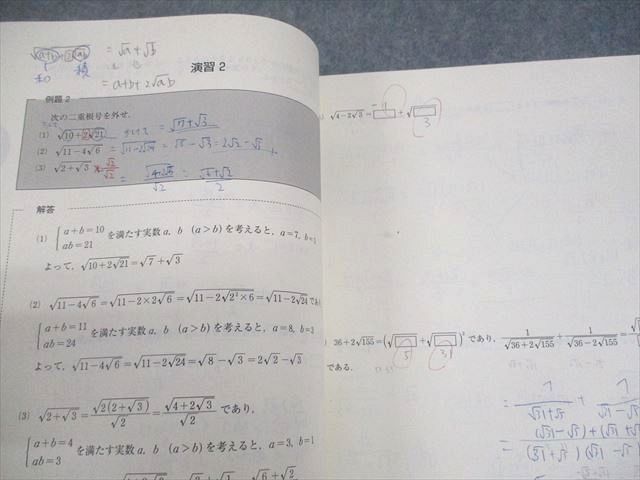 √(a+b)+2√ab = √a+√b
和 積
= a+b+2√ab
演習2
例題2
次の二重根号を外せ.
(1) √(10+2√21) = √7+√3
(2) √(11-4√6) = √(11-2√24) = √8-√3 = 2√2-√3
(3) √(2+√3) ×√2/√2 = = √6+√2/2
解答
(1) { a+b=10 ab=21 を満たす実数a, b (a>b)を考えると, a=7, b=3
よって, √(10+2√21)=√7+√3
(2) √(11-4√6)=√(11-2×2√6)=√(11-2√(2²×6))=√(11-2√24)であり
{ a+b=11 ab=24 を満たす実数a, b (a>b)を考えると, a=8, b=3
よって, √(11-4√6)=√(11-2√24)=√8-√3=2√2-√3
(3) √(2+√3)=√(2(2+√3))/√2=√(4+2√3)/√2 であり,
{ a+b=4 ab=3 を満たす実数a, b (a>b)を考えると, a=3, b=1
√(4-2√3)=□+√□
-1 3
) 36+2√155=(√□+√□)²であり, 1/√(36+2√155)+1/√(36-2√155)=
5 31
である.
= 1/(√31+√5) + 1/(√31-√5)
= (√31-√5)+(√31+√5)/(√31+√5)(√31-√5)